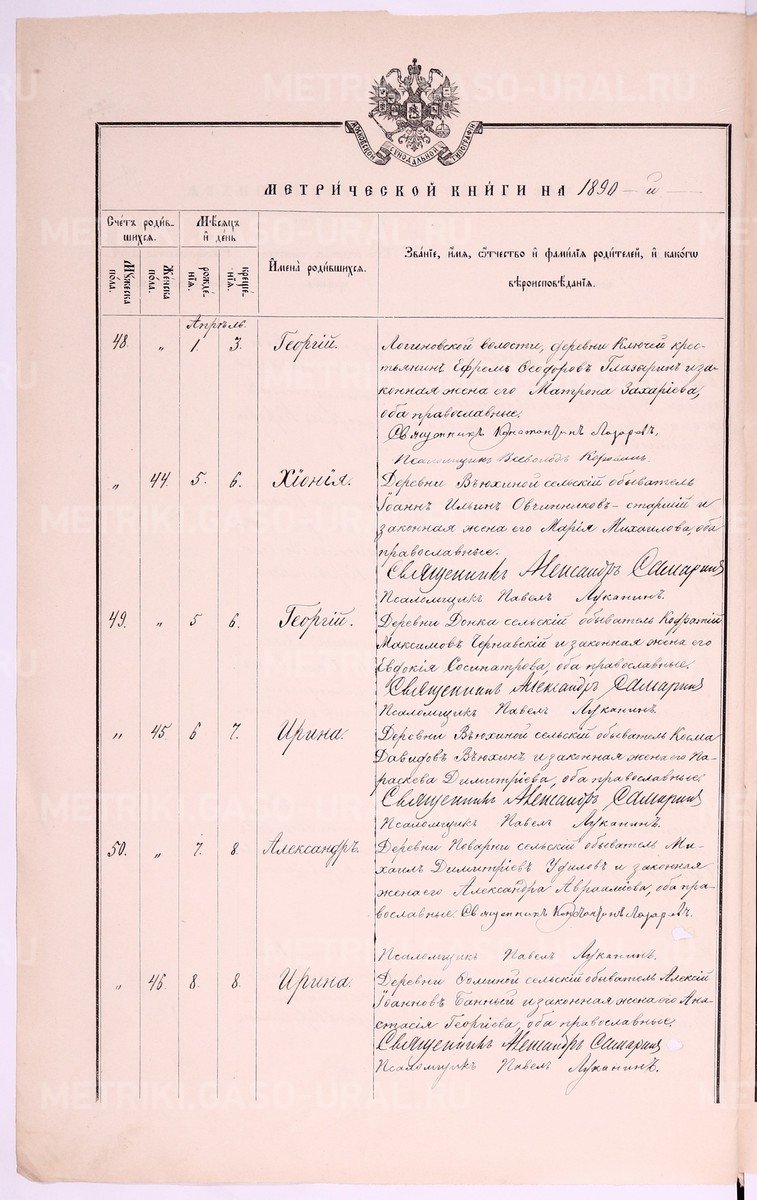 МОСКОВСКОЙ СѴНОДАЛЬНОЙ ТИПОГРАФІИ
МЕТРИ́ЧЕСКОЙ КНИ́ГИ НА 1890-й
Сче́тъ роди́в-
шихся.
Мѣ́сяцъ
и҆ де́нь
И҆мена̀ роди́вшихся.
Зва́нїе, и҆́мя, ѻ҆́тчество и҆ фами́лїя роди́телей, и҆ како́гѡ
вѣроисповѣ́данїя.
Мꙋ́жеска
по́ла.
Же́нска
по́ла.
рожде́-
нїя.
креще́-
нїя.
Апрѣль.
48. „ 1. 3. Георгій. Логиновской волости, деревни Ключей крес-
тьянинъ Ефремъ Ѳеодоровъ Глазыринъ и за-
конная жена его Матрона Захаріева,
оба православные.
Священникъ Константинъ Лазаревъ,
Псаломщикъ Всеволодъ
„ 44. 5. 6. Хіонія. Деревни Вьюхиной сельскій обыватель
Іоаннъ Ильинъ Овчинниковъ-старшій и
законная жена его Марія Михаилова, оба
православные.
Священникъ Александръ Самаринъ
Псаломщикъ Павелъ Луканинъ.
49. „ 5 6. Георгій. Деревни Донка сельскій обыватель Кодратій
Максимовъ Чернавскій и законная жена его
Евдокія Сосипатрова, оба православные.
Священникъ Александръ Самаринъ
Псаломщикъ Павелъ Луканинъ.
„ 45 6 7. Ирина. Деревни Вьюхиной сельскій обыватель Косма
Давидовъ Вьюхинъ и законная жена его Па-
раскева Димитріева, оба православные
Священникъ Александръ Самаринъ
Псаломщикъ Павелъ Луканинъ.
50. „ 7. 8. Александръ. Деревни Поварни сельскій обыватель Ми-
хаилъ Димитріевъ Удиловъ и законная
жена его Александра Авраамиева, оба пра-
вославные. Священникъ Константинъ Лазаревъ.
Псаломщикъ Павелъ Луканинъ.
„ 46. 8. 8. Ирина. Деревни Ѳоминой сельскій обыватель Алексій
Іоанновъ Банный и законная жена его Ана-
стасія Георгіева, оба православные
Священникъ Александръ Самаринъ
Псаломщикъ Павелъ Луканинъ.
METRIKI.GASO-URAL.RU